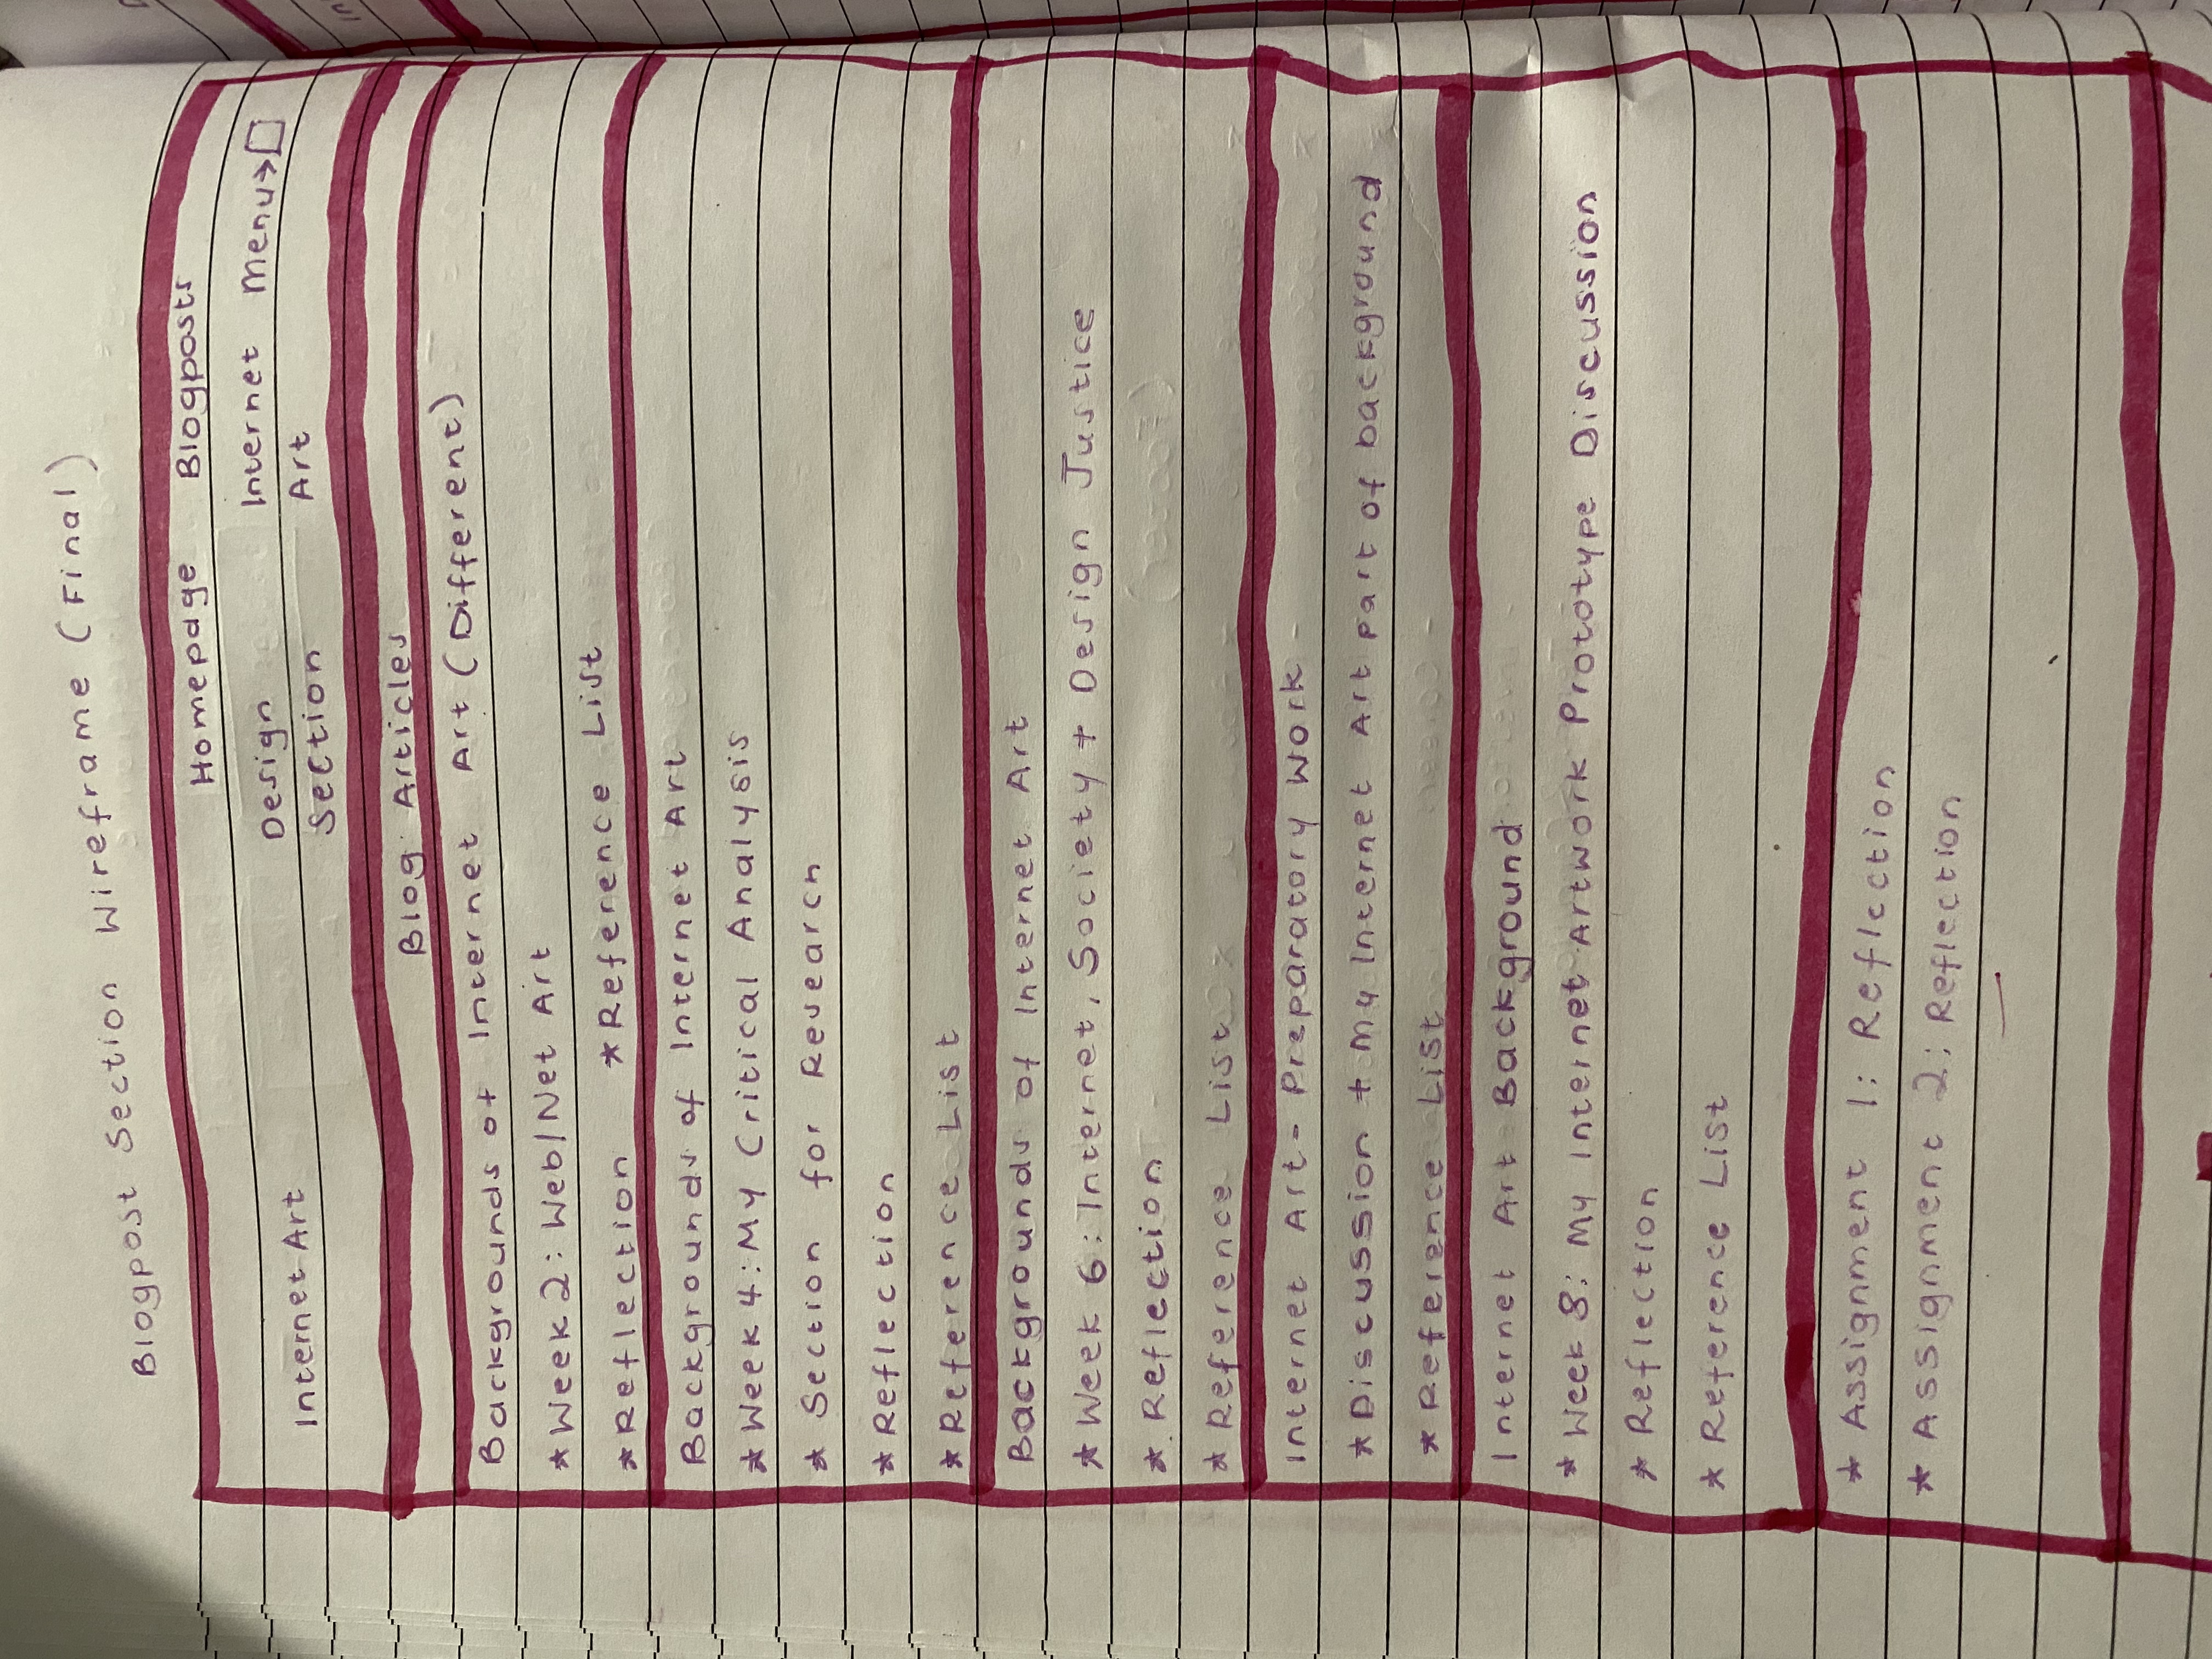 Blogpost Section Wireframe (Final)
Homepage Blogposts
Internet Art Design Section Internet Art Menu→
Blog Articles
Backgrounds of Internet Art (Different)
*Week 2: Web/Net Art
*Reflection *Reference List
Backgrounds of Internet Art
*Week 4: My Critical Analysis
* Section for Research
*Reflection
*Reference List
Backgrounds of Internet Art
*Week 6: Internet, Society + Design Justice
* Reflection
* Reference List
Internet Art- Preparatory Work
*Discussion + My Internet Art part of background
* Reference List
Internet Art Background
* Week 8: My Internet Artwork Prototype Discussion
* Reflection
* Reference List
* Assignment 1: Reflection
* Assignment 2: Reflection